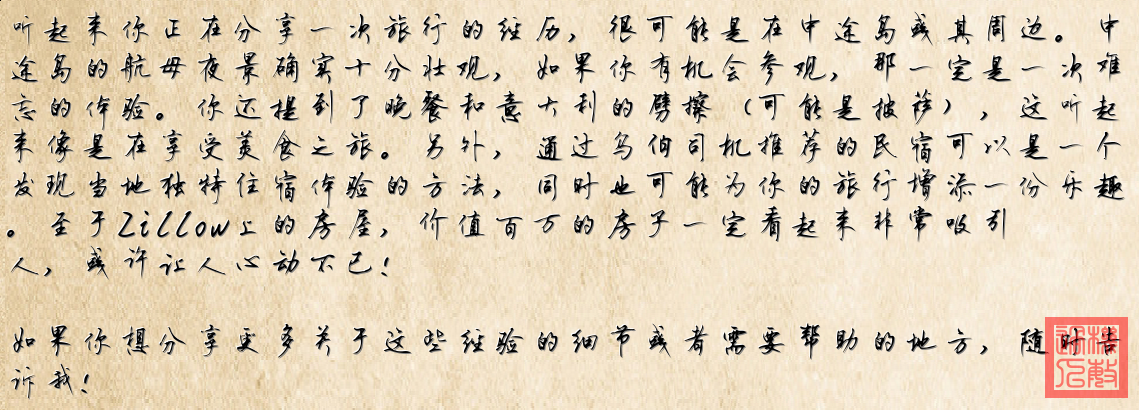 听起来你正在分享一次旅行的经历，很可能是在中途岛或其周边。中
途岛的航母夜景确实十分壮观，如果你有机会参观，那一定是一次难
忘的体验。你还提到了晚餐和意大利的劈擦（可能是披萨），这听起
来像是在享受美食之旅。另外，通过乌伯司机推荐的民宿可以是一个
发现当地独特住宿体验的方法，同时也可能为你的旅行增添一份乐趣
。至于Zillow上的房屋，价值百万的房子一定看起来非常吸引
人，或许让人心动不已！
如果你想分享更多关于这些经验的细节或者需要帮助的地方，随时告
诉我！